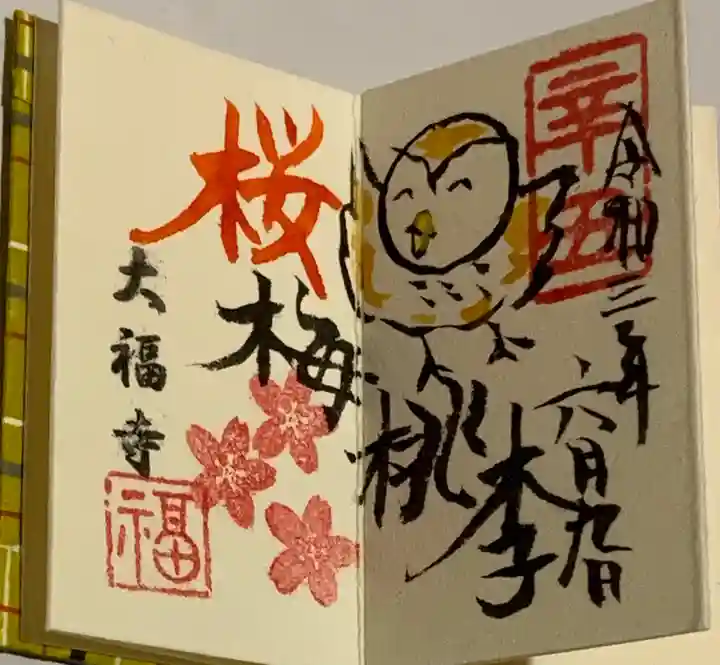 辛丑
令和三年
六月九日
桜
梅
桃
李
大福寺
福